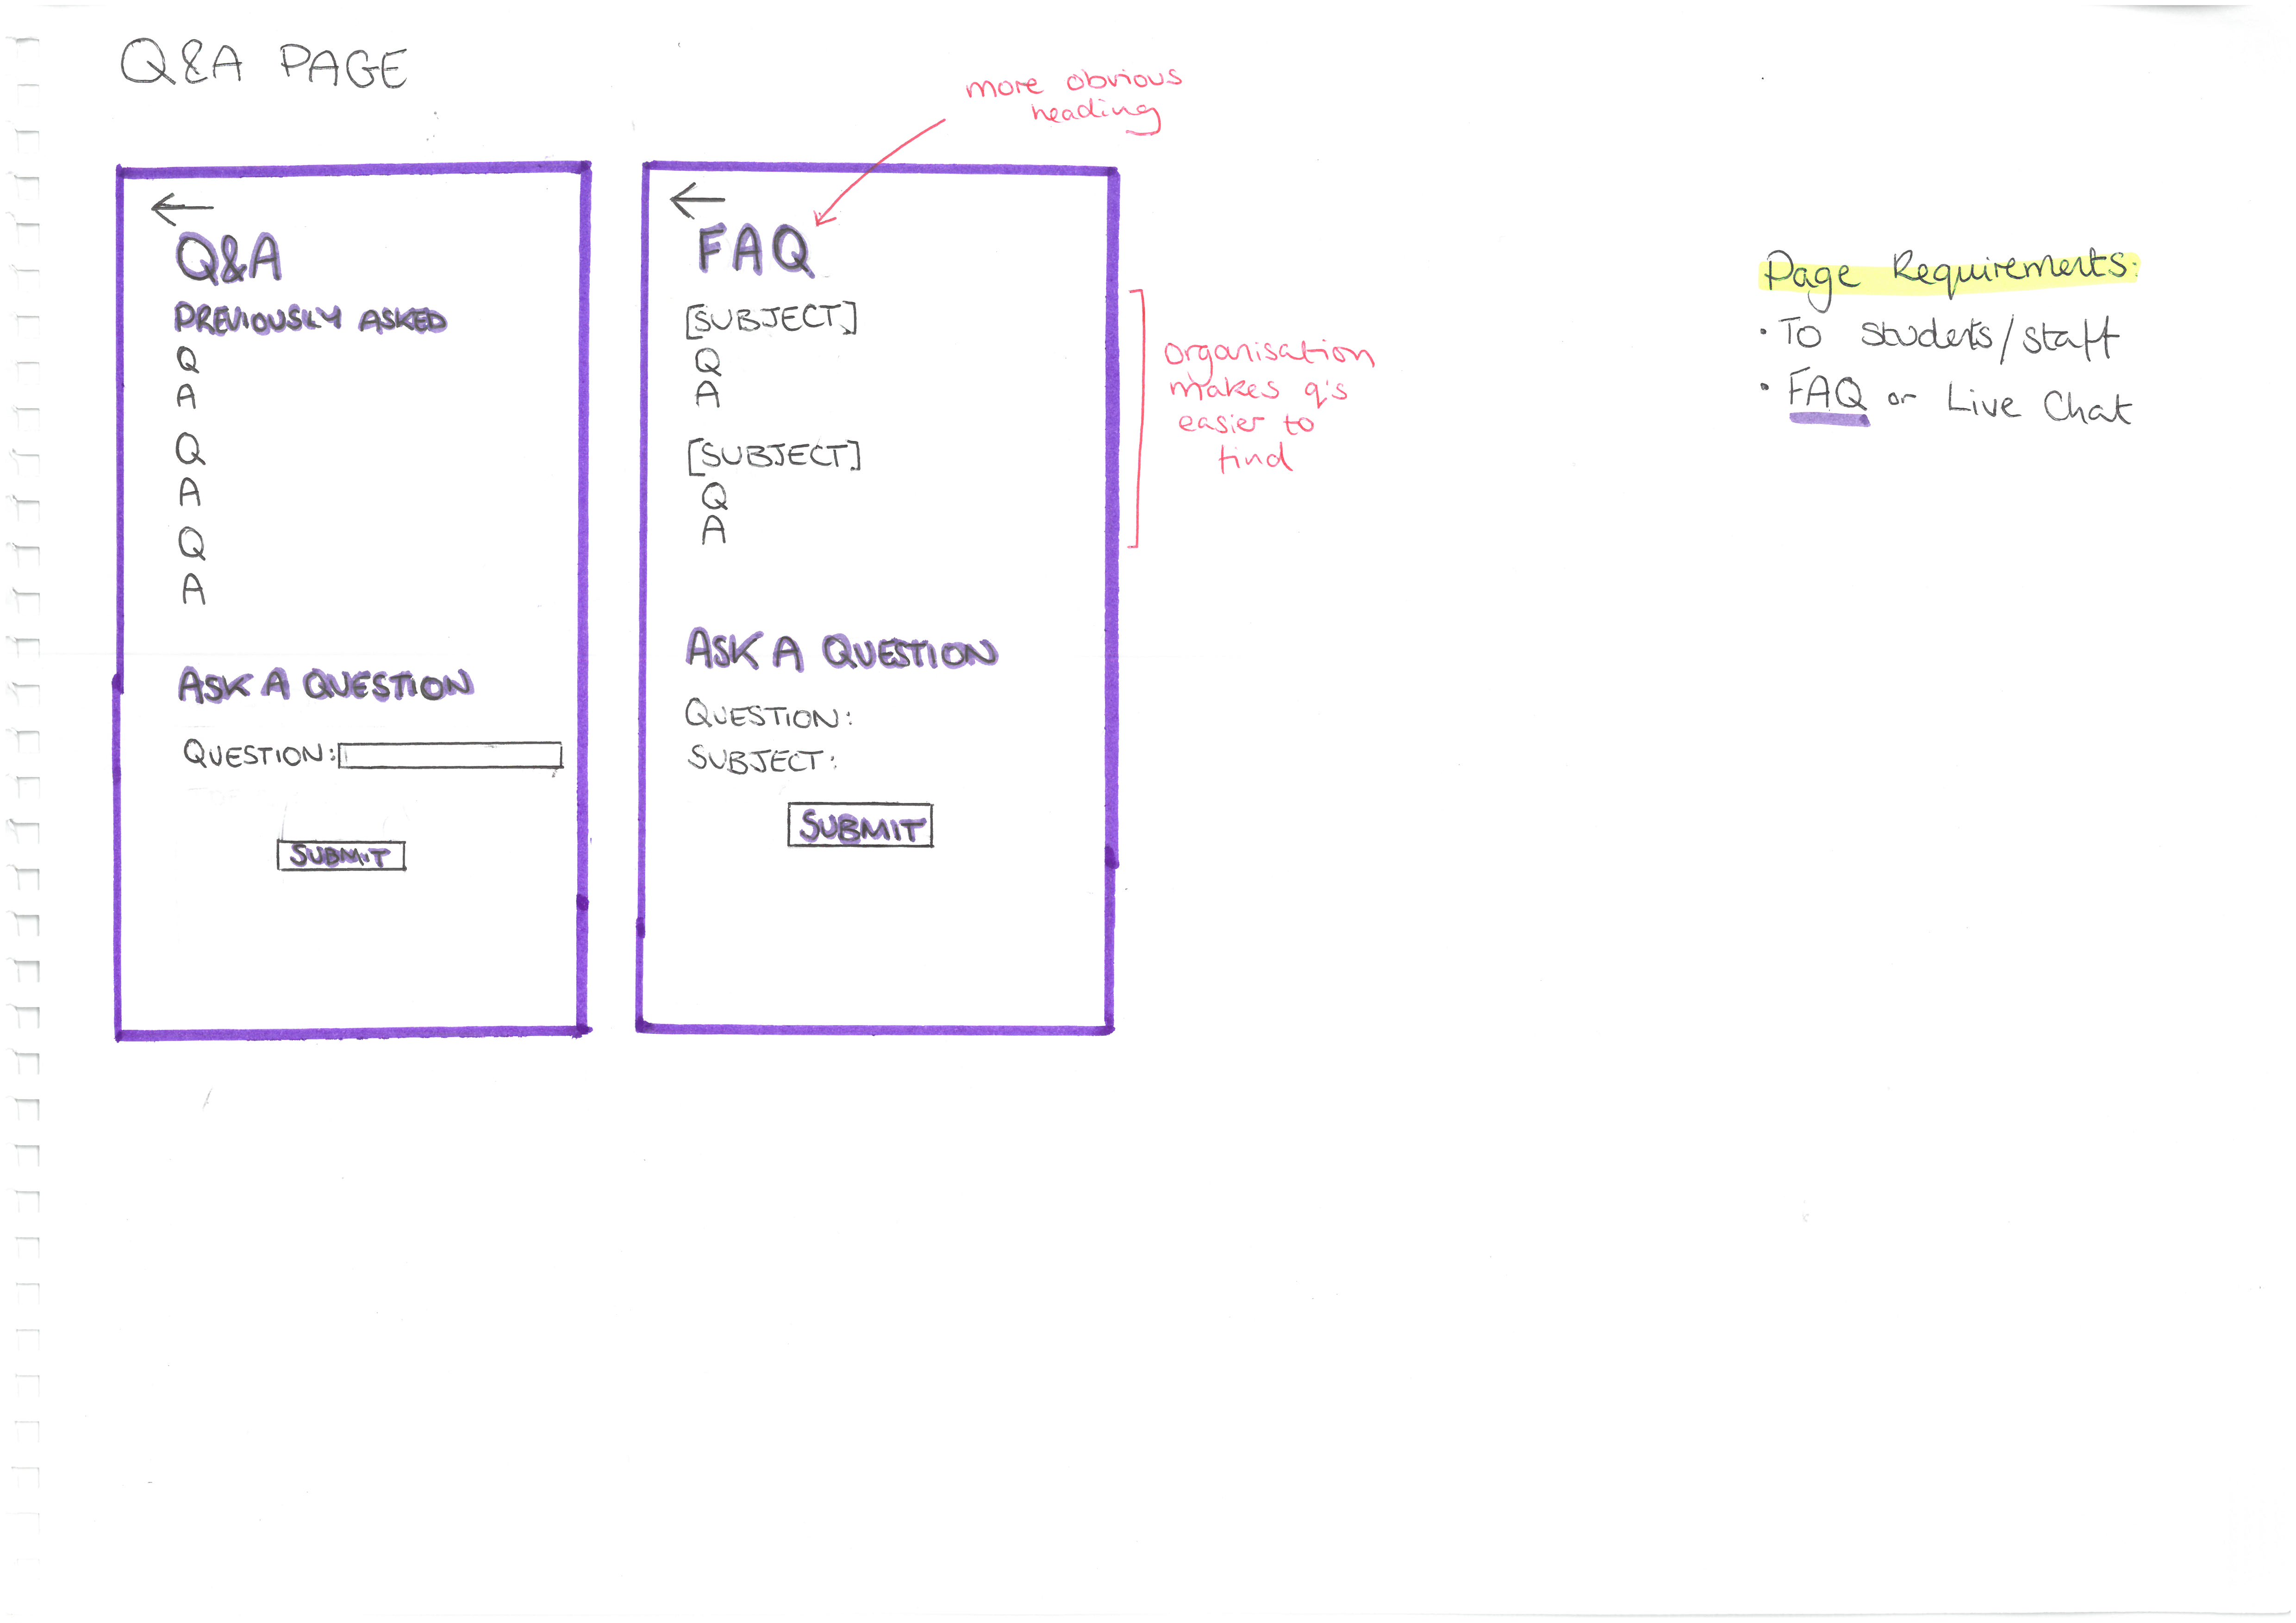 Q&A PAGE
more obvious
heading
←
Q&A
PREVIOUSLY ASKED
Q
A
Q
A
Q
A
ASK A QUESTION
QUESTION:
SUBMIT
←
FAQ
[SUBJECT]
Q
A
[SUBJECT]
Q
A
ASK A QUESTION
QUESTION:
SUBJECT:
SUBMIT
organisation
makes q's
easier to
find
Page Requirements:
• To students/staff
• FAQ or Live Chat